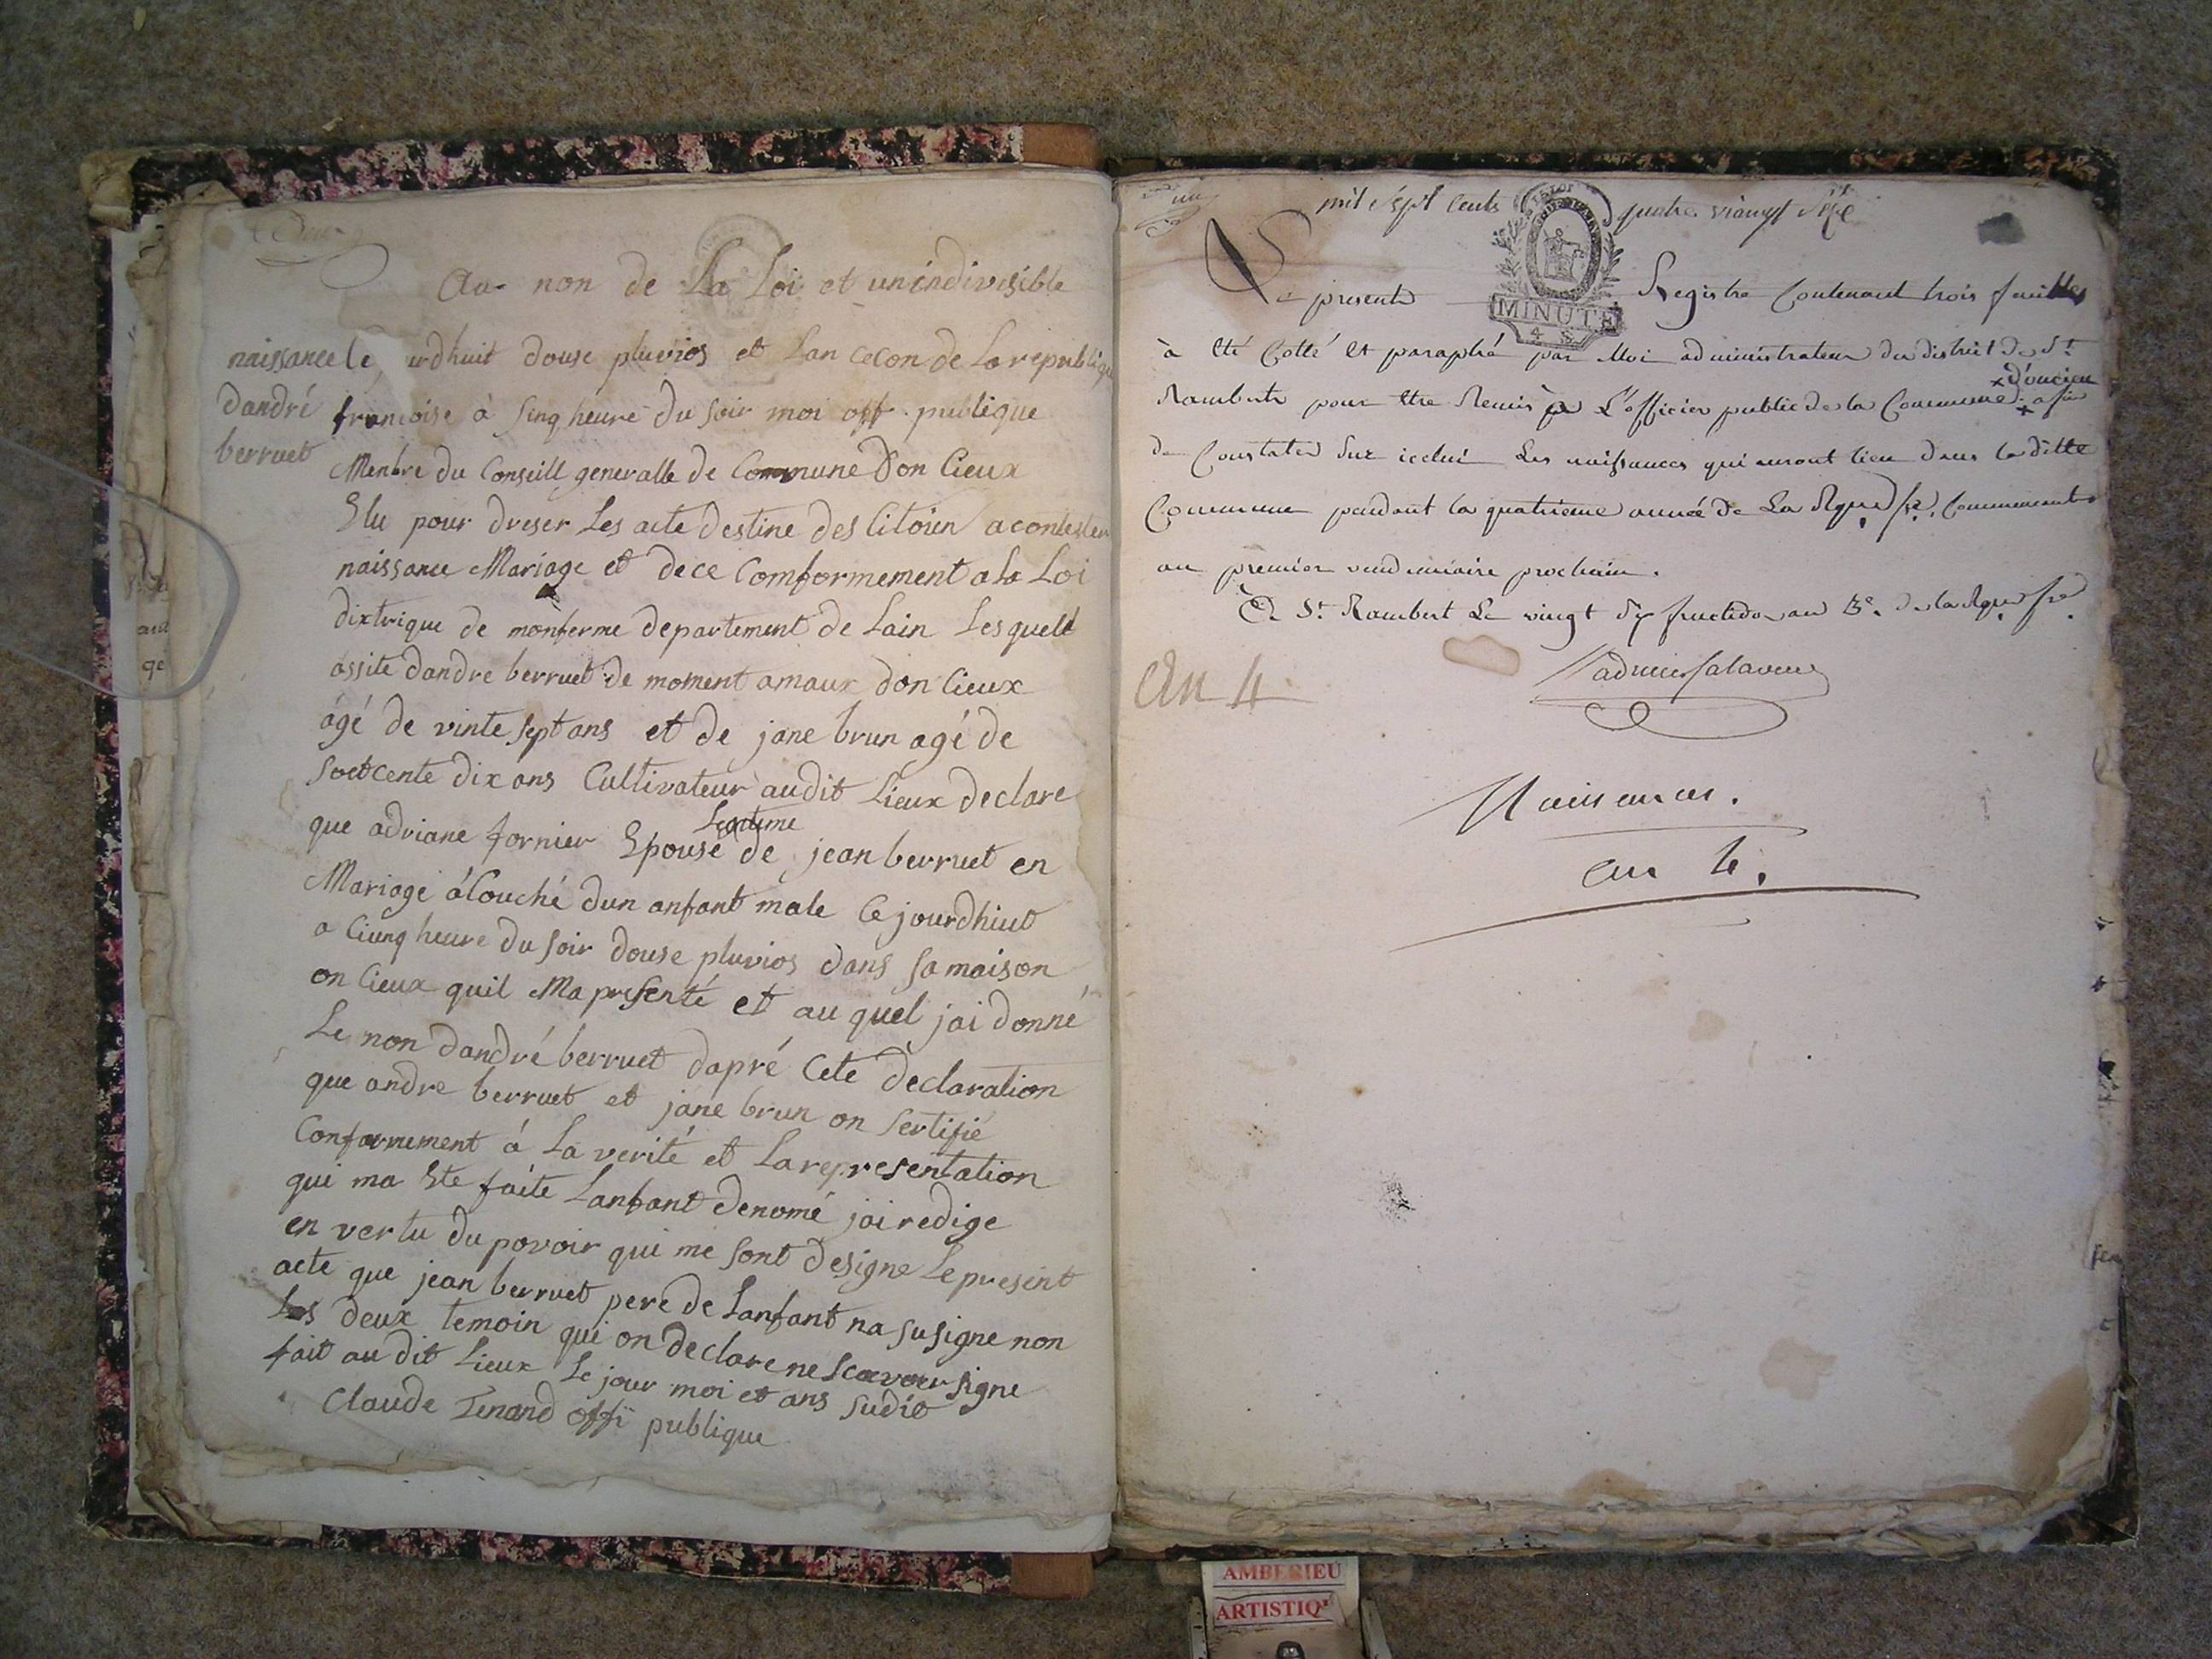 Au non de La Loi et un indivisible
naissance
dandré
berruet
le urdhuit douse pluvios et Lan Cecon de La republique
francoise à Sinq heure du soir moi off publique
Menbre du Conseill generalle de Commune Don Cieux
Elu pour dreser Les acte destine des Citöien a contester
naissance Mariage et dece Comformement a La Loi
dixtrique de monferme departement de Lain Lesquell
assite dandre berruet de moment amaux don Cieux
àgé de vinte sept ans et de jane brun agé de
Soetcente dix ans Cultivateur audit Lieux declare
Legitime
que adriane fornier Epouse de jean berruet en
Mariage àCouché dun anfant male Ce jourdhiut
a Ciunq heure du Soir douse pluvios dans Sa maison
on Cieux quil Ma presenté et au quel jai donné
Le non dandré berruet dapré Cete declaration
que andre berruet et jane brun on Sertifié
Conformement à La verité et La representation
qui ma Ete faite Lanfant denomé jai redige
en vertu du povoir qui me Sont designe Le present
acte que jean berruet pere de Lanfant na su signe non
Les deux temoin qui on declare ne Scavoir signe
fait au dit Lieux Le jour moi et ans Sudit
Claude Tenand offi publique
mil Sept Cents quatre viangt Seize
MINUTE
4 S
Le present Registre Contenant trois feuilles
à été Cotté et paraphé par Moi administrateur du district de St
Rambert pour être Remis à L'officier public de la Commune x d'oncieu x afin
de Constater Sur icelui Les naissances qui auront lieu dans la ditte
Commune pendant la quatrieme année de La Rque fse, Commencant
au premier vendemiaire prochain.
À St Rambert Le vingt dix fructidor an 3e. de la Rque fse
An 4
Naissances.
an 4.
AMBERIEU
ARTISTIQ